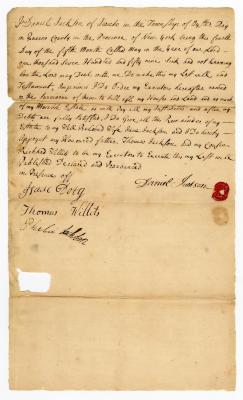 I Daniel Jackson of Jambo in the Township of Oyster Bay
in Queens County in the Province of New York being this
Day of the fifth Month Called May in the year of our Lord
one thousand Seven Hundred and fifty nine Sick and not knowing
how the Lord may Deal with me Do make this my last will and
Testament, I Do Order my Executors hereafter named
to Sell off my Houses and Land and as much
of my Movable Estate as will pay all my Just Debts and after my
Debts are fully Satisfied I Do Give all the Remainder of my
Estate to my Well Beloved Wife Jackson And I Do hereby
Appoint my Honoured father Thomas Jackson and my
Richard Willits to be my Executors to Execute this my Last will
Published Declared and Pronounced
in Presence off
Isaac Doty
Daniel Jackson
Thomas Willits
Phebe Jackson